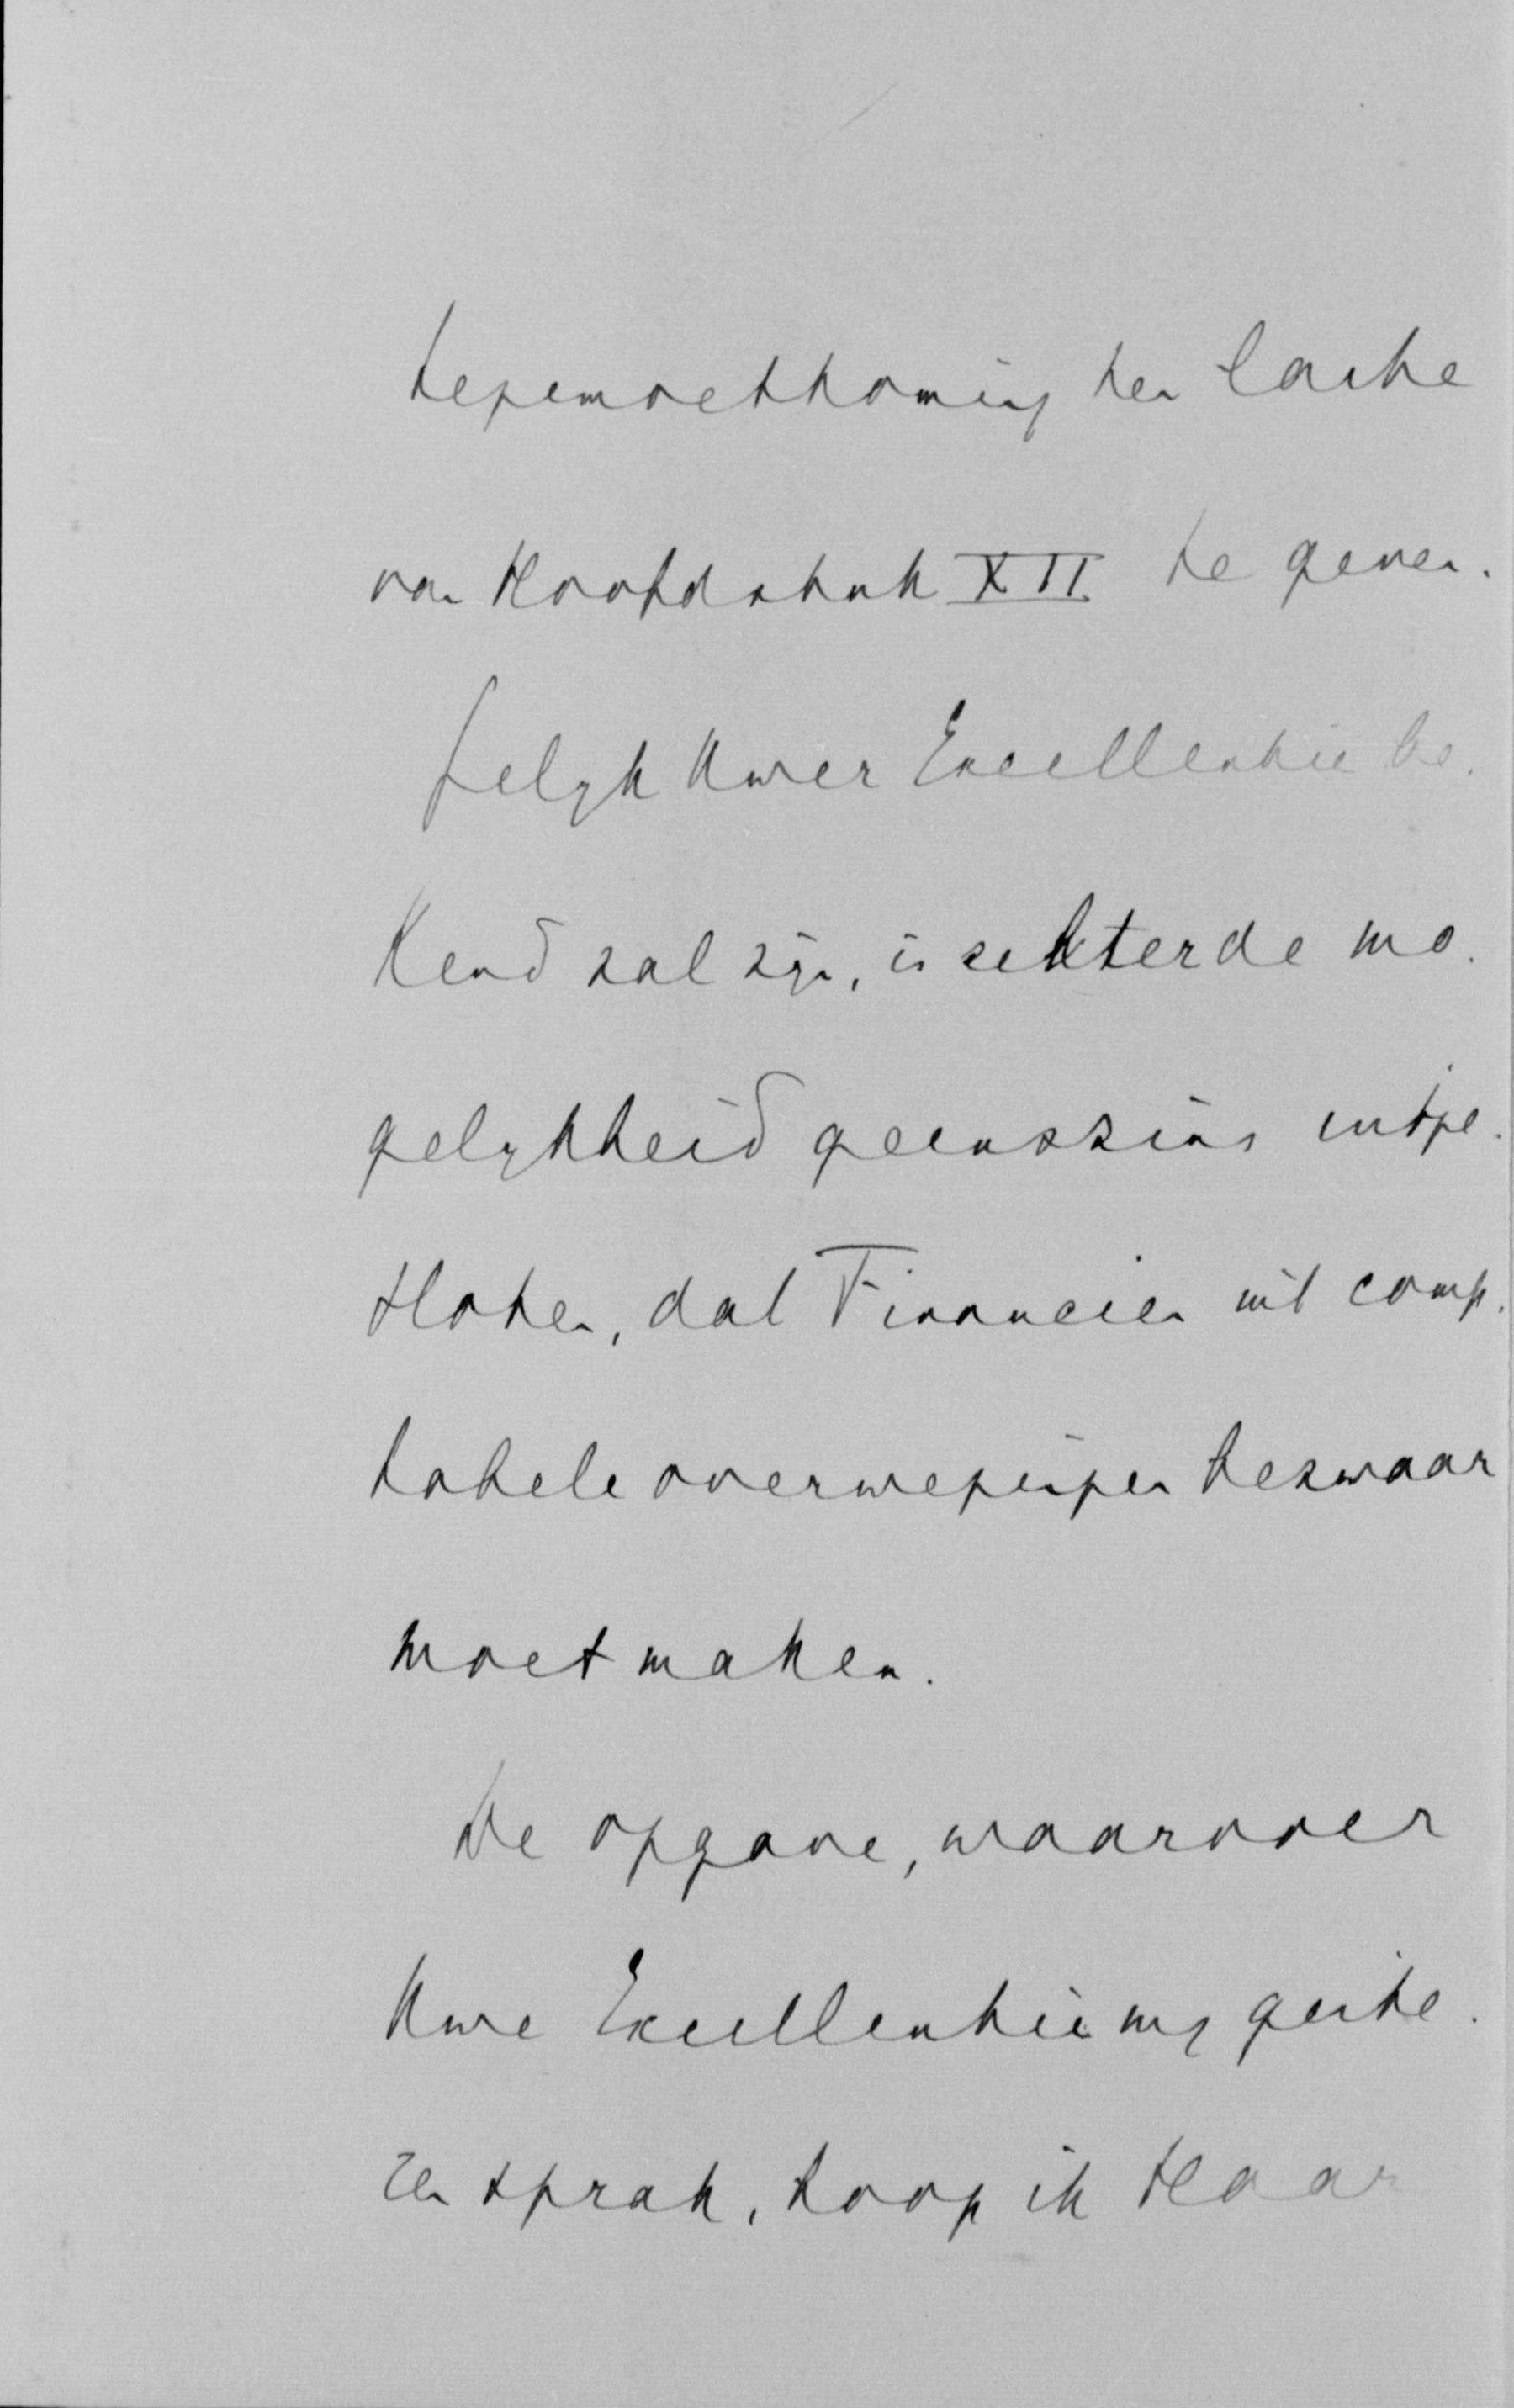 tegemoetkoming ten laste
van Hoofdstuk XII te geven.
Gelyk Uwer Excellentie be.
kend zal zijn, is echter de mo.
gelykheid geenszins uitge.
sloten, dat Financien uit comp.
tabele overwegingen bezwaar
moet maken.
De opgave, waarover
Uwe Excellentie my giste.
ren sprak, hoop ik Haar